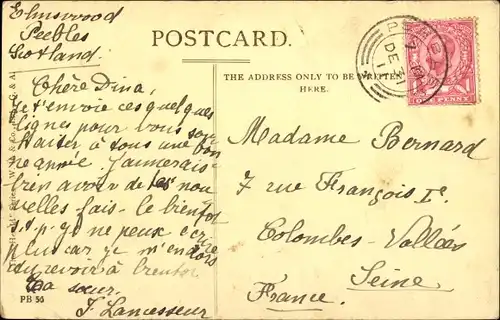 Elmswood
Peebles
Scotland.
POSTCARD.
THE ADDRESS ONLY TO BE WRITTEN
HERE.
ONE PENNY
Chère Dina,
Je t'envoie ces quelques
lignes pour vous sou
haiter à tous une bon
ne année J'aimerais
bien avoir de tes nou
velles fais-le bientot
s.t.p. je ne peux écrire
plus car je m'endors
au revoir à bientot
Ta sœur.
J. Lamesseur
PB 56
Madame Bernard
7 rue François Ie.
Colombes-Vallées
Seine
France.